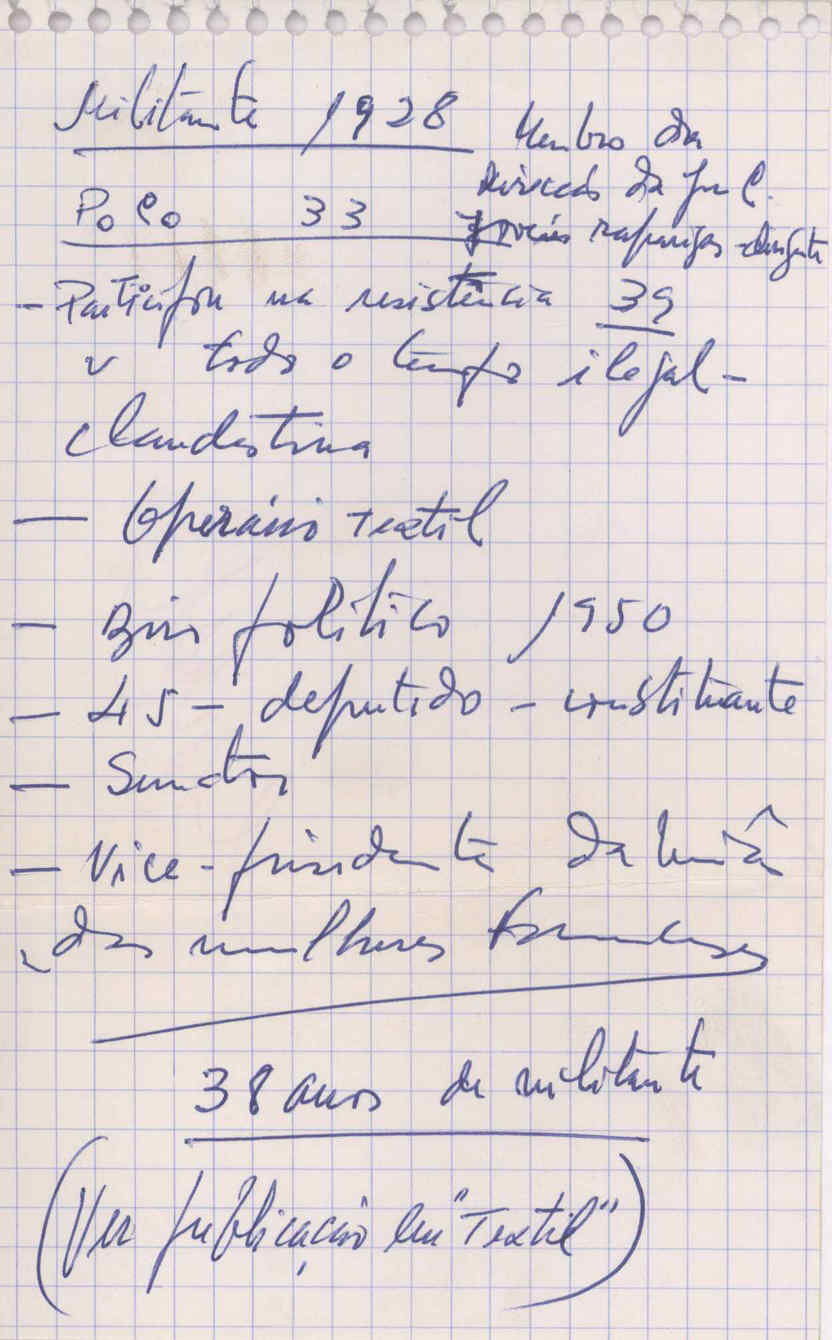 Militante 1928
Membro da
Direcção da Ju C.
Jovens raparigas - dirigente
Po Co 33
- Participou na resistência 39
v todo o tempo ilegal -
clandestina
- Operário textil
- Biro politico 1950
- 45 - deputado - constituante
- Senador
- Vice-presidente da União
das mulheres francesas
38 anos de militante
(Ver publicação em "Textil")